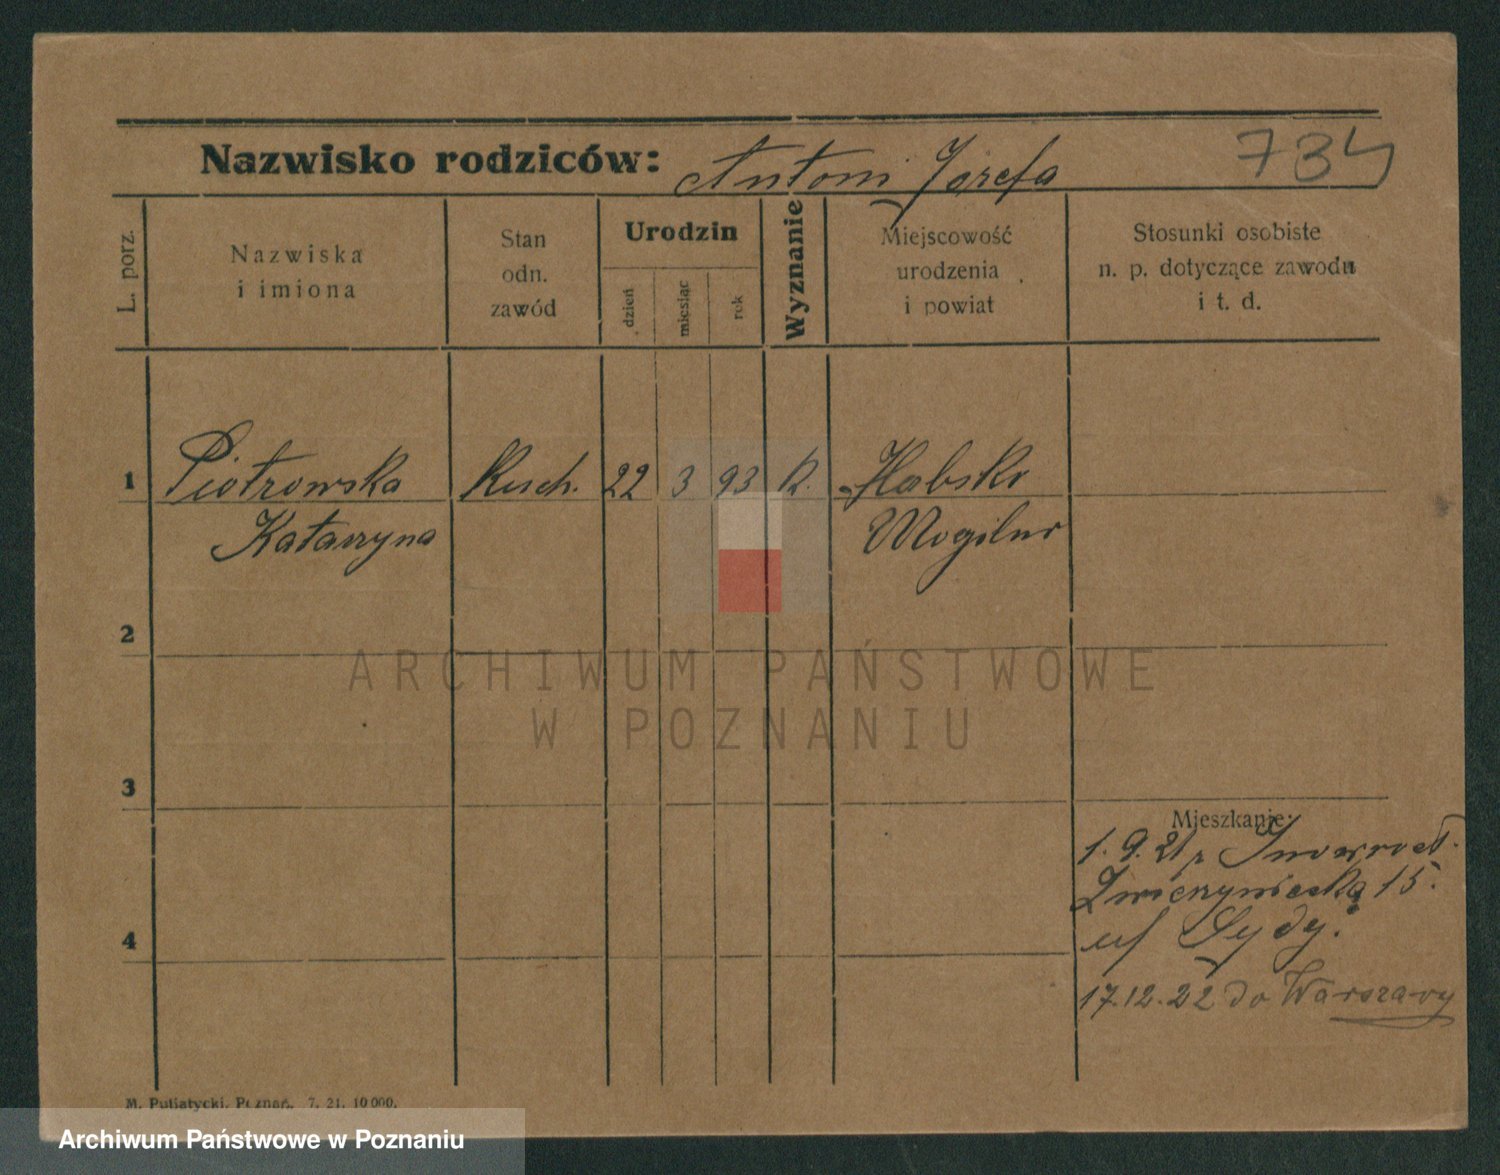 Nazwisko rodziców: Antoni Józefa
734
L. porz.
Nazwiska
i imiona
Stan
odn.
zawód
Urodzin
dzień
miesiąc
rok
Wyznanie
Miejscowość
urodzenia
i powiat
Stosunki osobiste
n. p. dotyczące zawodu
i t. d.
1 Piotrowska Kuch. 22 3 93 k. Habsko
Katarzyna Mogilno
2
3
4
Mieszkanie:
1. 9. 21 z Inowrocł.
Zwierzyniecka 15.
u/
17.12.22 do Warszawy
ARCHIWUM PAŃSTWOWE
W POZNANIU
M. Putiatycki, Poznań. 7. 21. 10 000.
Archiwum Państwowe w Poznaniu